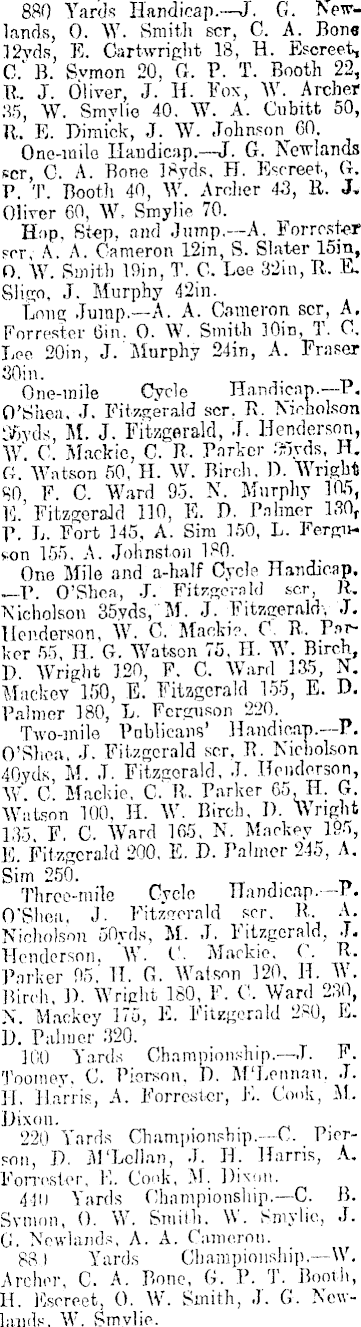 880 Yards Handicap.—J. G. New-
lands, O. W. Smith scr, C. A. Bone
12yds, E. Cartwright 18, H. Escreet,
C. B. Symon 20, G. P. T. Booth 22,
R. J. Oliver, J. H. Fox, W. Archer
35, W. Smylie 40, W. A. Cubitt 50,
R. E. Dimick, J. W. Johnson 60.
One-mile Handicap.—J. G. Newlands
scr, C. A. Bone 18yds, H. Escreet, G.
P. T. Booth 40, W. Archer 43, R. J.
Oliver 60, W. Smylie 70.
Hop, Step, and Jump.—A. Forrester
scr, A. A. Cameron 12in, S. Slater 15in,
O. W. Smith 19in, T. C. Lee 32in, R. E.
Sligo, J. Murphy 42in.
Long Jump.—A. A. Cameron scr, A.
Forrester 6in, O. W. Smith 10in, T. C.
Lee 20in, J. Murphy 24in, A. Fraser
30in.
One-mile Cycle Handicap.—P.
O'Shea, J. Fitzgerald scr, R. Nicholson
25yds, M. J. Fitzgerald, J. Henderson,
W. C. Mackie, C. R. Parker 35yds, H.
G. Watson 50, H. W. Birch, D. Wright
80, F. C. Ward 95, N. Murphy 105,
E. Fitzgerald 110, E. D. Palmer 130,
P. L. Fort 145, A. Sim 150, L. Fergu-
son 155, A. Johnston 180.
One Mile and a-half Cycle Handicap.
—P. O'Shea, J. Fitzgerald scr, R.
Nicholson 35yds, M. J. Fitzgerald, J.
Henderson, W. C. Mackie, C. R. Par-
ker 55, H. G. Watson 75, H. W. Birch,
D. Wright 120, F. C. Ward 135, N.
Mackey 150, E. Fitzgerald 155, E. D.
Palmer 180, L. Ferguson 220.
Two-mile Publicans' Handicap.—P.
O'Shea, J. Fitzgerald scr, R. Nicholson
40yds, M. J. Fitzgerald, J. Henderson,
W. C. Mackie, C. R. Parker 65, H. G.
Watson 100, H. W. Birch, D. Wright
135, F. C. Ward 165, N. Mackey 195,
E. Fitzgerald 200, E. D. Palmer 245, A.
Sim 250.
Three-mile Cycle Handicap.—P.
O'Shea, J. Fitzgerald scr, R. A.
Nicholson 50yds, M. J. Fitzgerald, J.
Henderson, W. C. Mackie, C. R.
Parker 95, H. G. Watson 120, H. W.
Birch, D. Wright 180, F. C. Ward 230,
N. Mackey 175, E. Fitzgerald 280, E.
D. Palmer 320.
100 Yards Championship.—J. F.
Toomey, C. Pierson, D. M'Lennan, J.
H. Harris, A. Forrester, E. Cook, M.
Dixon.
220 Yards Championship.—C. Pier-
son, D. M'Lellan, J. H. Harris, A.
Forrester, E. Cook, M. Dixon.
440 Yards Championship.—C. B.
Symon, O. W. Smith, W. Smylie, J.
G. Newlands, A. A. Cameron.
880 Yards Championship.—W.
Archer, C. A. Bone, G. P. T. Booth,
H. Escreet, O. W. Smith, J. G. New-
lands, W. Smylie.